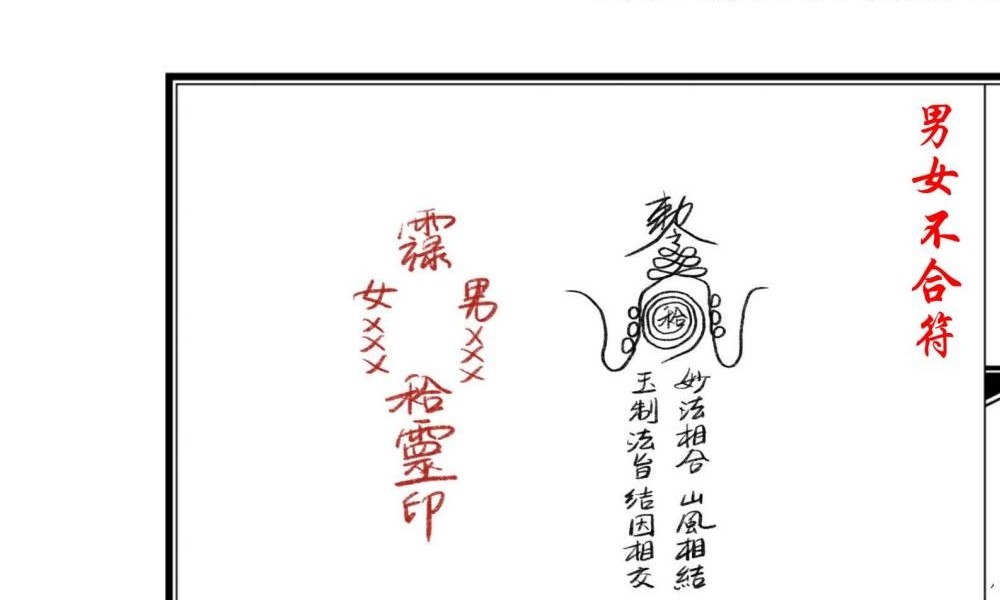 男女不合符
敕
妙法相合 山風相結
玉制法旨 结因相交
男×××
女×××
靈印